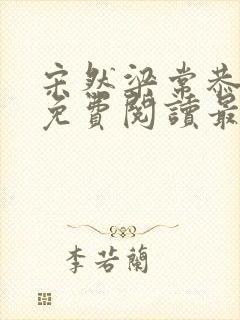 宋然梁常恭
免費閱讀最
李若蘭